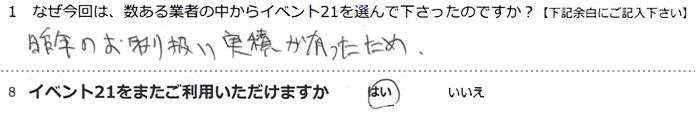 1 なぜ今回は、数ある業者の中からイベント21を選んで下さったのですか?【下記余白にご記入下さい】
昨年のお取り扱い実績が有ったため、
8 イベント21をまたご利用いただけますか はい いいえ